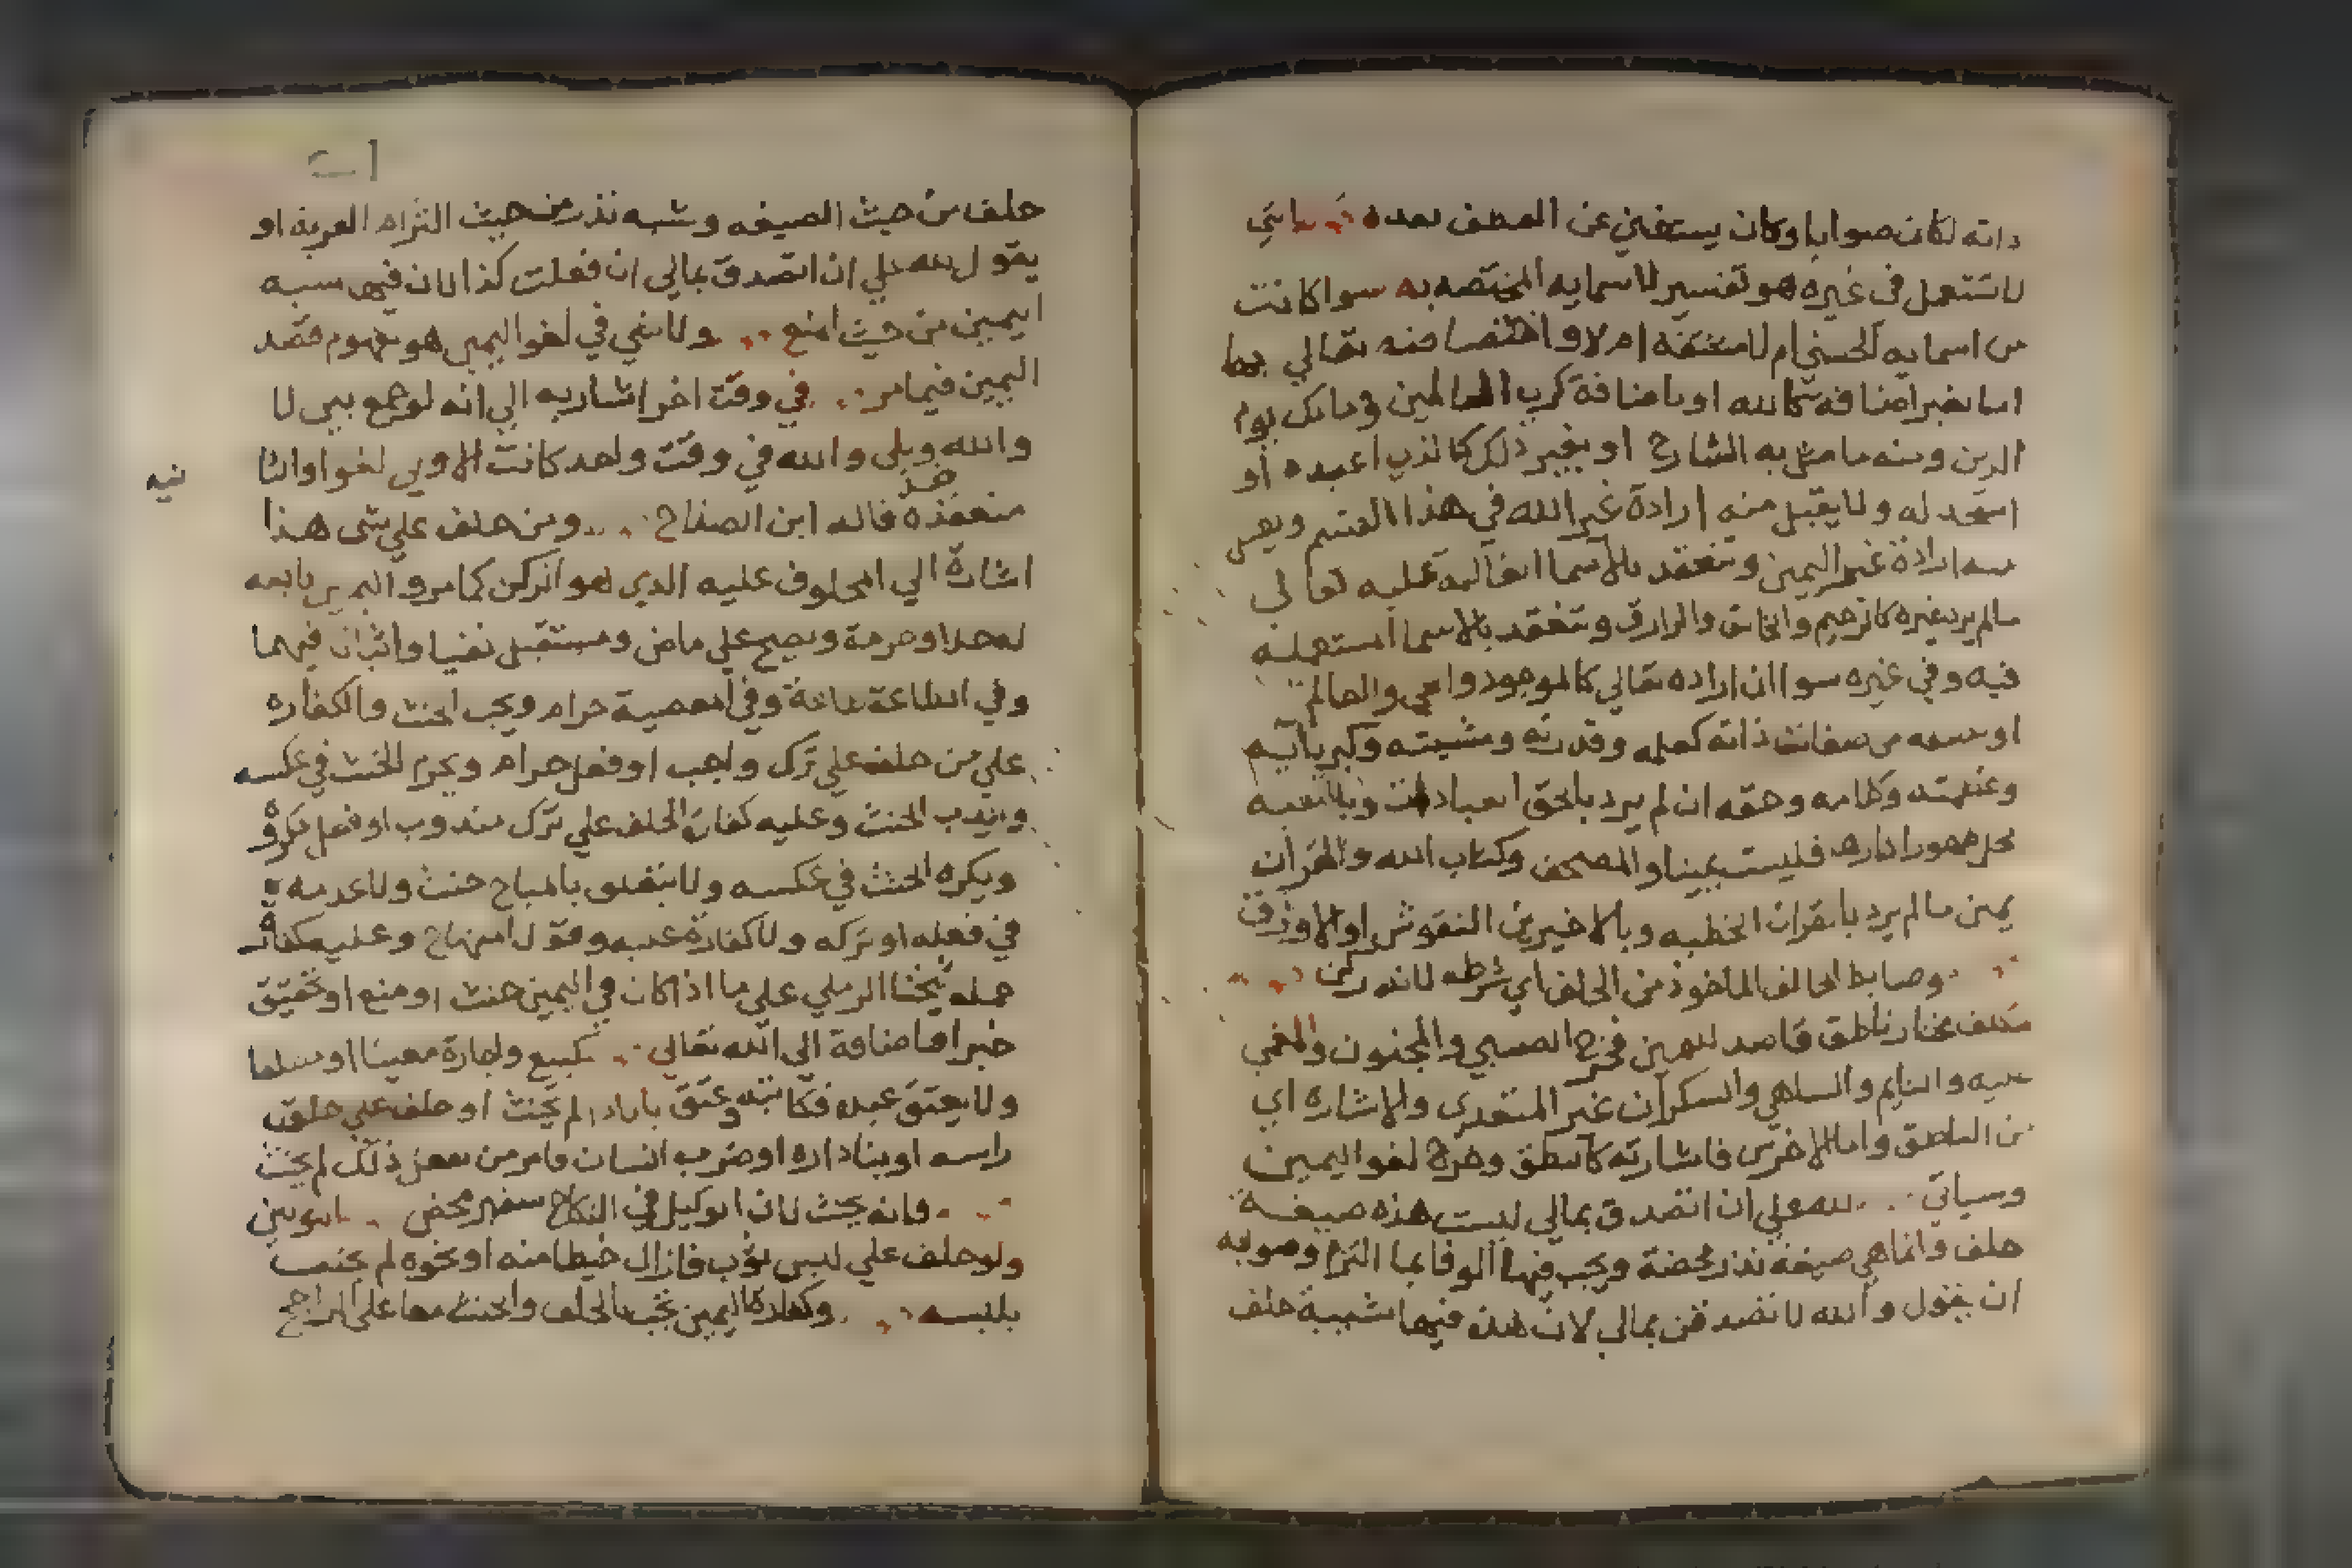 ذاته لكان صوابا وكان يستغني عن العطف بعده
لا تستعمل في غيره هو تفسير لاسمايه المختصه به سوا كانت
من اسمايه الحسني ام لا مشتقه ام لا واختصاصه تعالي بها
اما بغير اضافه كالله او باضافة كرب العالمين ومالك يوم
الدين ومنه ما مثل به الشارح او بغير ذلك كالذي اعبده او
اسجد له ولا يقبل منه ارادة غير الله في هذا القسم ويقبل
منه ارادة غير اليمين وتنعقد بالاسما الغالبة عليه تعالي
مالم يرد غيره كالرحيم والخالق والرازق وتنعقد بالاسما المستعمله
فيه وفي غيره سوا ان اراده تعالي كالموجود والحي والعالم
او بصفه من صفات ذاته كعلمه وقدرته ومشيته وكبريايه
وعظمته وكلامه وحقه ان لم يرد بالحق العبادات وبالبقيه
ظهور اثارها فليست يمينا والمصحف وكتاب الله والقران
يمين مالم يرد بالقران الخطبه وبالاخيرين النقوش او الاوراق
وضابط الحالف الماخوذ من الحلف اي شرطه لانه ركن
مكلف مختار ناطق قاصد لليمين فخرج الصبي والمجنون والمغمي
عليه والنايم والساهي والسكران غير المتعدي والاشاره اي
من الناطق واما الاخرس فاشارته كالنطق وخرج لغو اليمين
وسياتي لله علي ان اتصدق بمالي ليست هذه صيغة
حلف وانما هي صيغة نذر محضة ويجب فيها الوفا بما التزم وصوابه
ان يقول والله لاتصدقن بمالي لان هذه فيها شبيبة حلف
حلف من حيث الصيغه وشبه نذر من حيث التزام القربه او
يقول لله علي ان اتصدق بمالي ان فعلت كذا لان فيها شبه
اليمين من حيث المنع ولا شي في لغو اليمين هو مفهوم قصد
اليمين فيما مر في وقت اخر اشار به الي انه لو جمع بين لا
والله وبلي والله في وقت واحد كانت الاولي لغوا والثا
نيه
منعقده قاله ابن الصلاح ومن حلف علي شي هذا
اشارة الي المحلوف عليه الذي هو الركن كما مر
وحرمة ويصح علي ماض ومستقبل نفيا واثباتا فيهما
وفي الطاعة طاعة وفي المعصية حرام ويجب الحنث والكفاره
علي من حلف علي ترك واجب او فعل حرام ويحرم الحنث في عكسه
ويندب الحنث وعليه كفارة الحلف علي ترك مندوب او فعل مكروه
ويكره الحنث في عكسه ولا يتعلق بالمباح حنث ولا عدمه
في فعله او تركه ولا كفارة عليه وقول المنهاج وعليه كفارة
حمله شيخنا الرملي علي ما اذا كان في اليمين حنث او منع او تحقيق
خبر او اضافة الي الله تعالي كبيع واجارة معينا او مطلقا
ولا يعتق عبده فكاتبه وعتق باداء لم يحنث او حلف علي حلق
راسه او بنا داره او ضرب انسان فامر من فعل ذلك لم يحنث
فانه يحنث لان الوكيل في النكاح سفير محض
ولو حلف علي لبس ثوب فازال خيطا منه او نحوه لم يحنث
بلبسه وكفارة اليمين تجب بالحلف والحنث معا علي الراجح